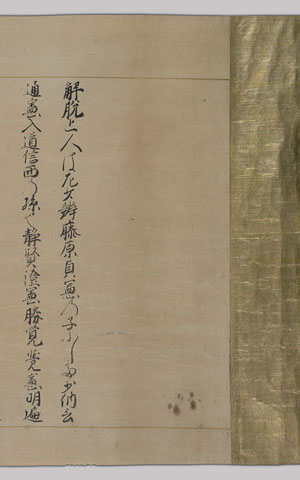 解脱上人は左少辨藤原貞憲の子にして少納言
通憲入道信西の孫也静賢澄憲勝覚覚憲明遍